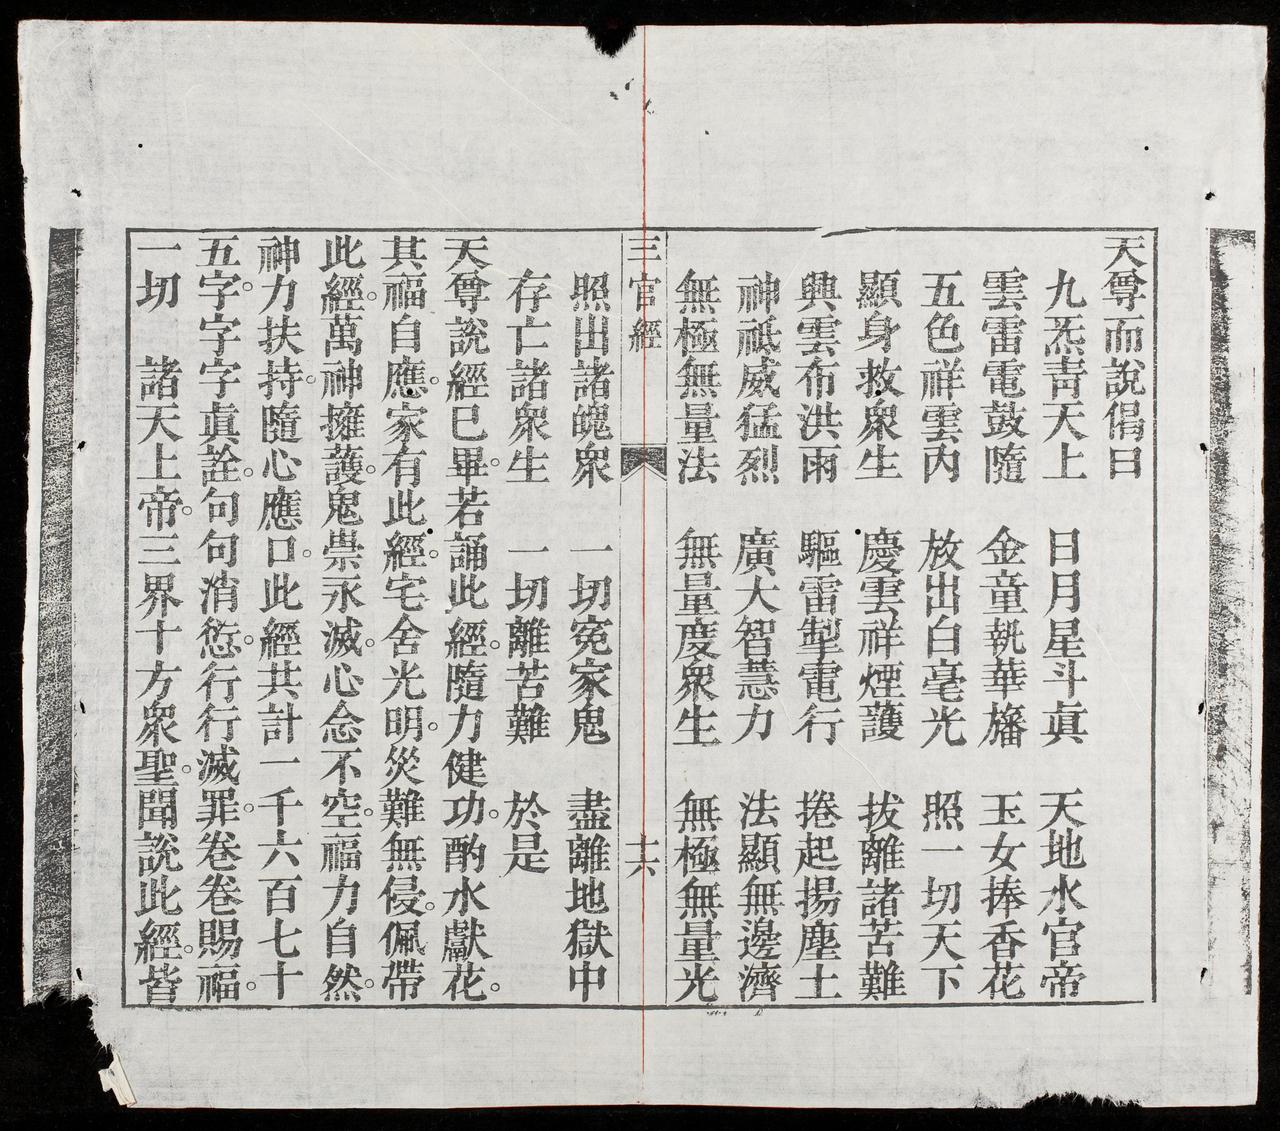 天尊而說偈曰
九炁靑天上　日月星斗眞　天地水官帝
雲雷電鼓隨　金童執華旛　玉女捧香花
五色祥雲內　放出白毫光　照一切天下
顯身救衆生　慶雲祥煙護　拔離諸苦難
興雲布洪雨　驅雷掣電行　捲起揚塵土
神祇威猛烈　廣大智慧力　法顯無邊濟
無極無量法　無量度衆生　無極無量光
三官經　十六
照出諸魄衆　一切寃家鬼　盡離地獄中
存亡諸衆生　一切離苦難　於是
天尊說經已畢。若誦此經。隨力健功。酌水獻花。
其福自應。家有此經。宅舍光明。災難無侵。佩帶
此經。萬神擁護。鬼祟永滅。心念不空。福力自然。
神力扶持。隨心應口。此經共計一千六百七十
五字。字字眞詮。句句消愆。行行滅罪。卷卷賜福。
一切　諸天上帝。三界十方衆聖。聞說此經。皆